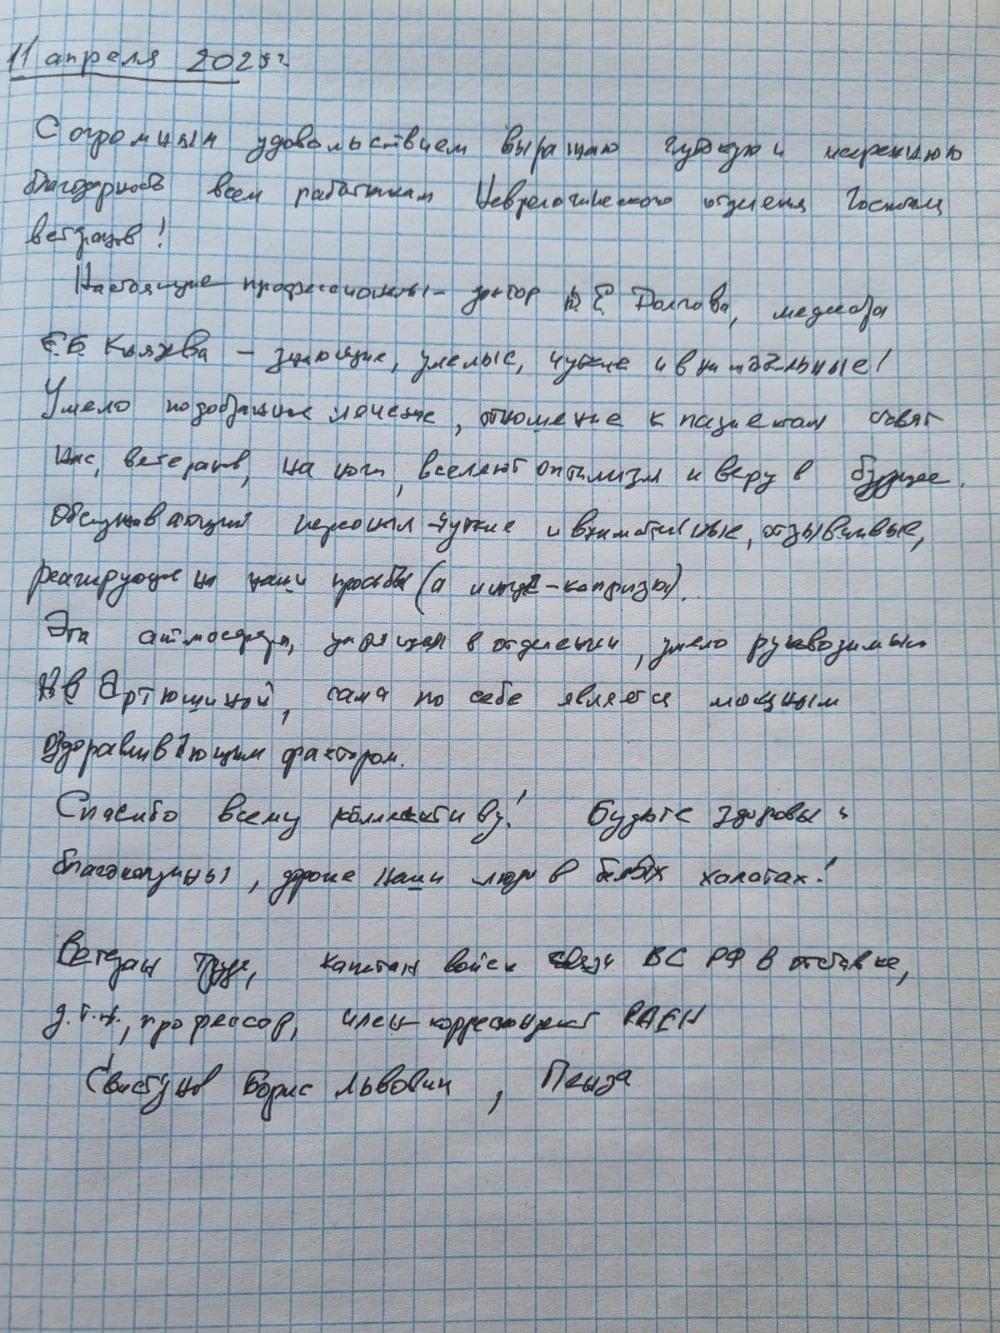 11 апреля 202 г
С огромным удовольствием выражаю глубокую и искреннюю
благодарность всем работникам Неврологического отделения Госпиталя
ветеранов!
Настоящие профессионалы - доктор Е Долгова, медсестра
Е.Б. Князева - знающие, умелые, чуткие и внимательные!
Умело подобранное лечение, отношение к пациентам ставят
нас, ветеранов, на ноги, вселяют оптимизм и веру в будущее.
Обслуживающий персонал - чуткие и внимательные, отзывчивые,
реагирующие на наши просьбы (а иногда - капризы).
Эта атмосфера, царящая в отделении, умело руководимым
Артюшиной, сама по себе является мощным
оздоравливающим фактором.
Спасибо всему коллективу! Будьте здоровы и
благополучны, дорогие наши люди в белых халатах!
Ветеран труда, капитан войск связи ВС РФ в отставке,
д.т.н., профессор, член-корреспондент РАЕН
Свистунов Борис Львович, Пенза